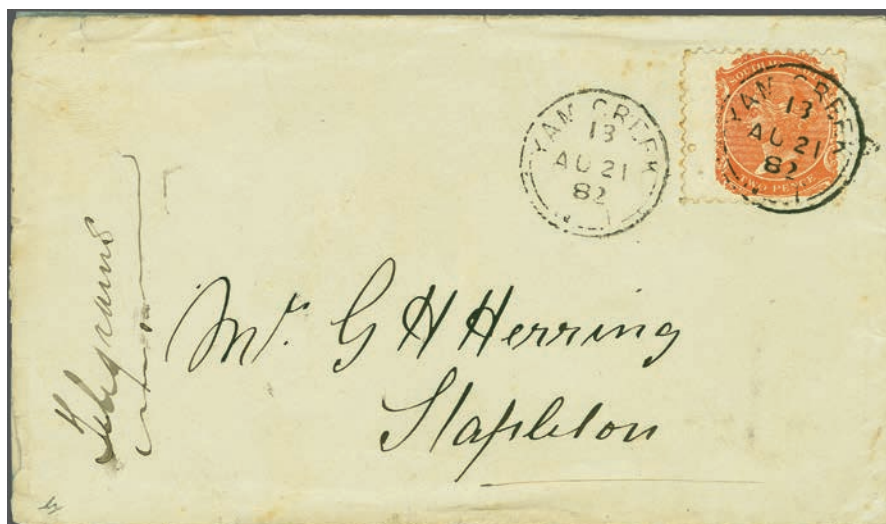 YAM CREEK
13
AU 21
82
SOUTH
YAM CREEK
13
AU 21
82
TWO PENCE
Telegrams
Mr. G H Herring
Stapleton